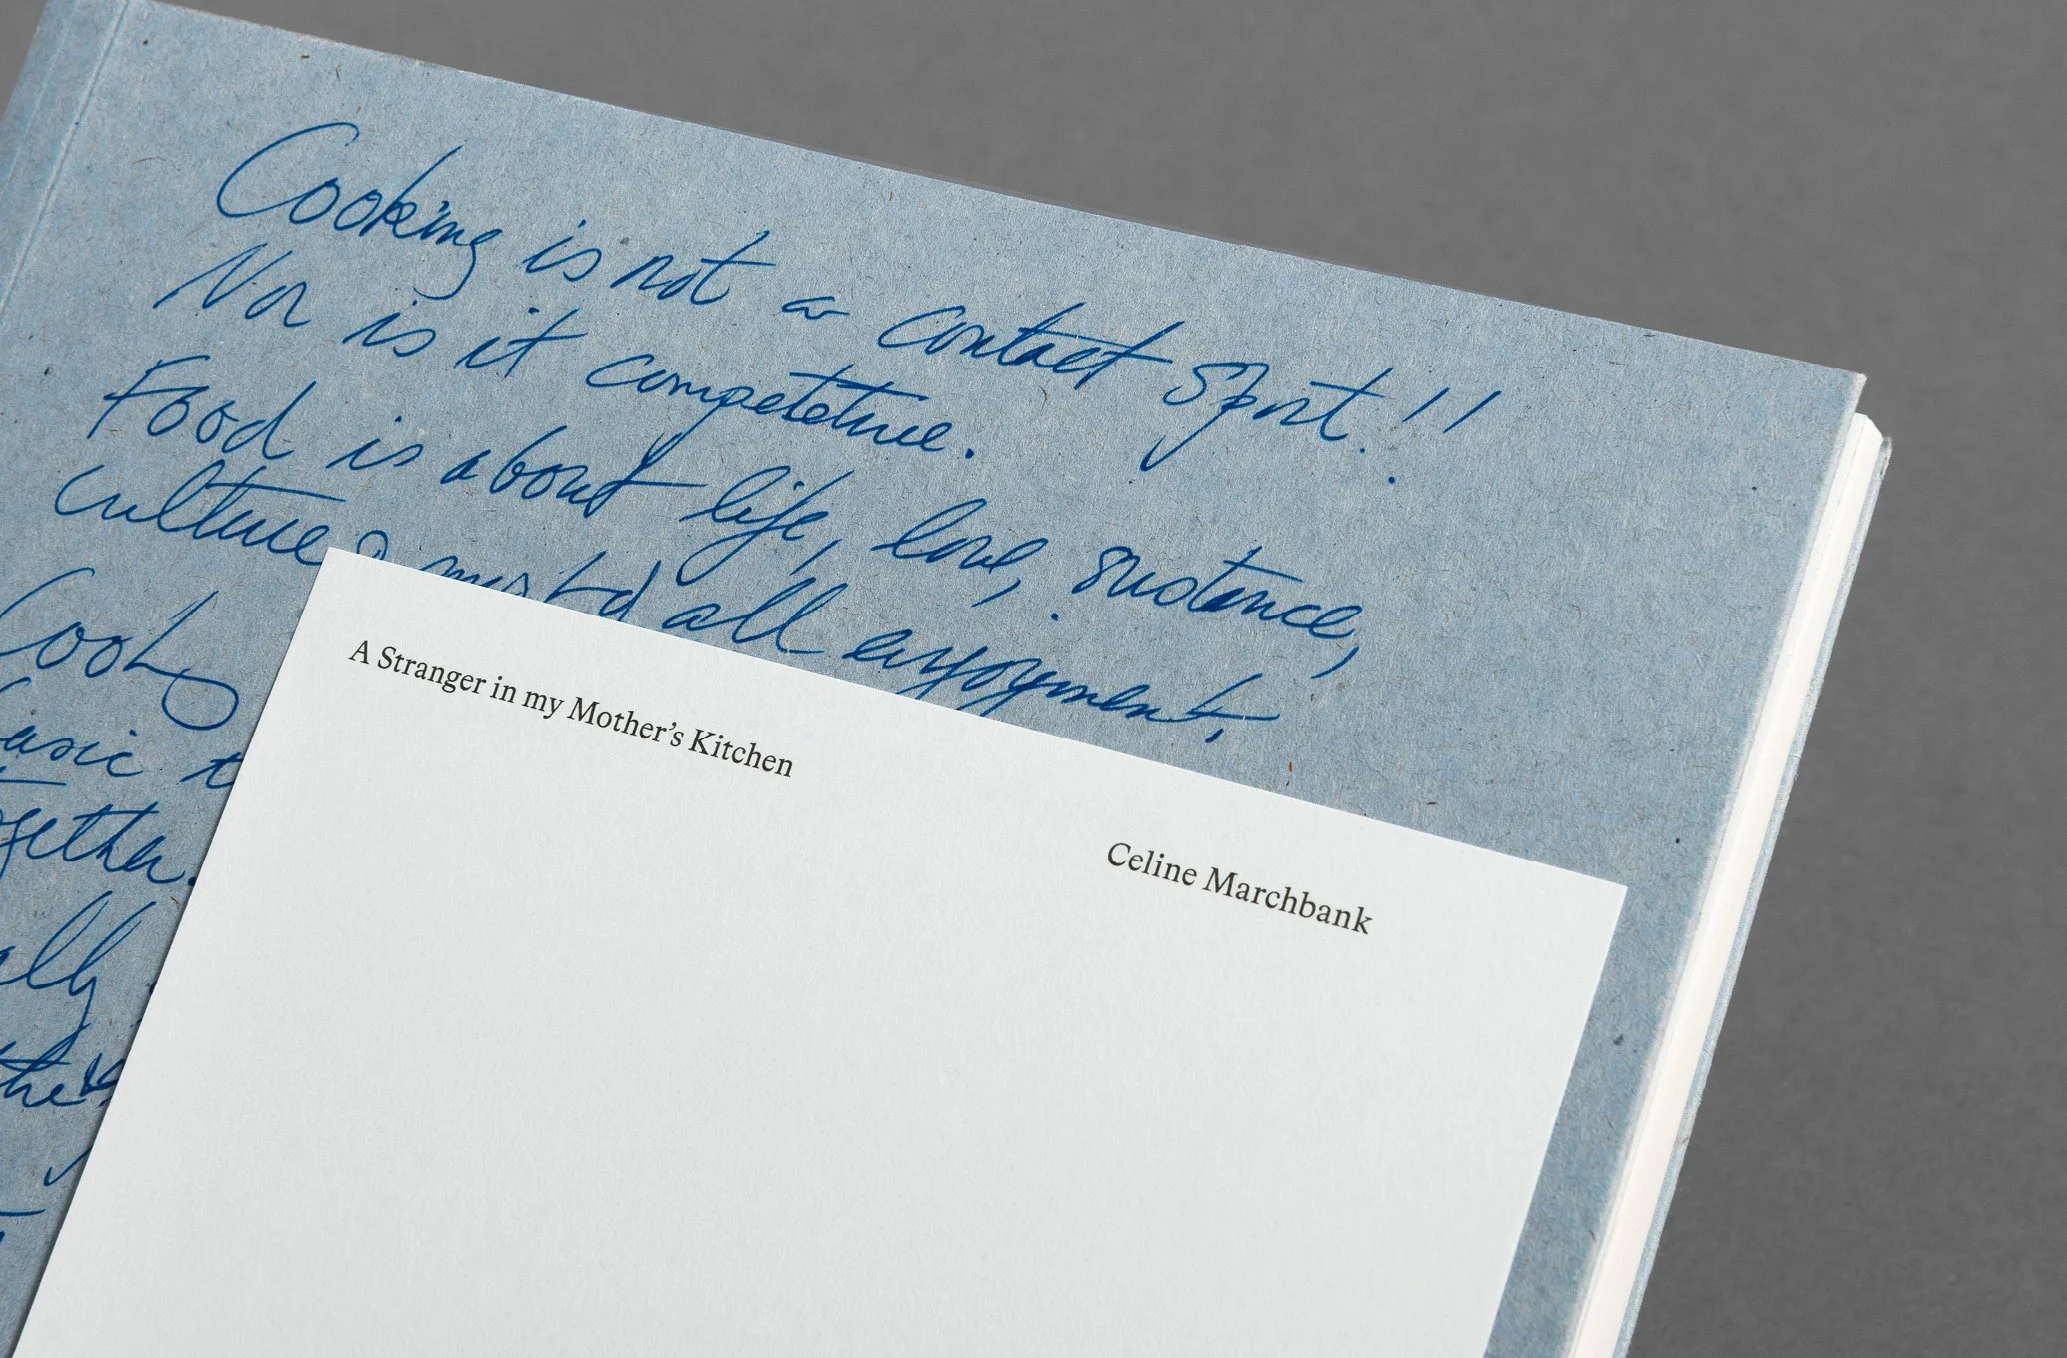 Cooking is not a contact sport!!
Nor is it competetive.
Food is about life, love, sustence,
culture & most of all enjoyment,
Cook
basic t
together.
ally
the
A Stranger in my Mother's Kitchen
Celine Marchbank